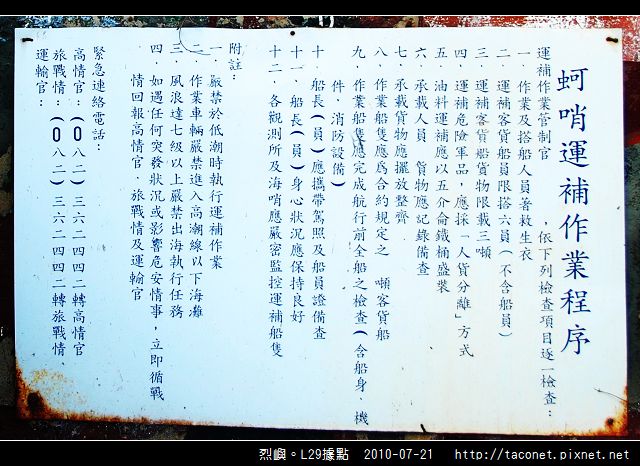 蚵哨運補作業程序
運補作業管制官　　　，依下列檢查項目逐一檢查：
一．作業及搭船人員著救生衣
二．運補客貨船員限搭六員(不含船員)
三．運補客貨船貨物限載三噸
四．運補危險軍品，應採「人貨分離」方式
五．油料運補應以五介侖鐵桶盛裝
六．承載人員　貨物應記錄備查
七．承載貨物應擺放整齊
八．作業船隻應為合約規定之　噸客貨船
九．作業船隻應完成航行前全船之檢查(含船身、機
件，消防設備)
十．船長(員)應攜帶駕照及船員證備查
十一．船長(員)身心狀況應保持良好
十二．各觀測所及海哨應嚴密監控運補船隻
附註：
一．嚴禁於低潮時執行運補作業
二．作業車輛嚴禁進入高潮線以下海灘
三．風浪達七級以上嚴禁出海執行任務
四．如遇任何突發狀況或影響危安情事，立即循戰
情回報高情官．旅戰情及運輸官
緊急連絡電話：
高情官：(0八二)三六二四四二轉高情官
旅戰情：(0八二)三六二四四二轉旅戰情．
運輸官：
烈嶼。L29據點　2010-07-21　http://taconet.pixnet.net